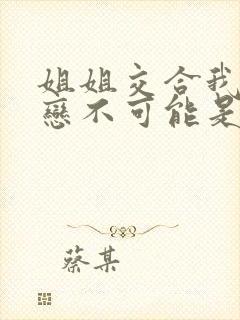 姐姐交合我
戀不可能是
蔡某